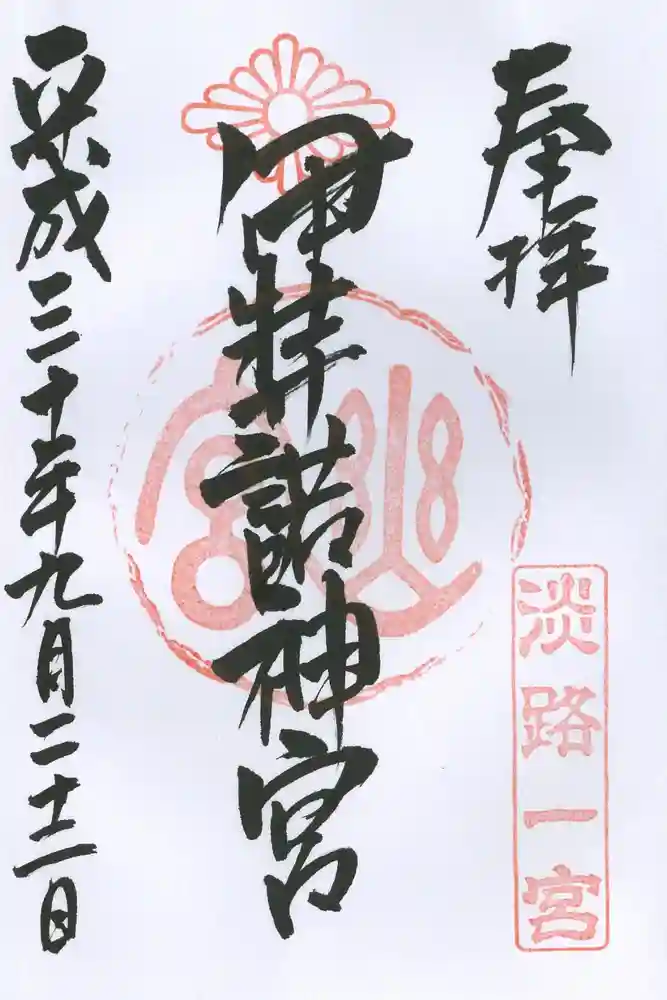 奉拝
淡路一宮
伊弉諾神宮
平成三十年九月二十二日